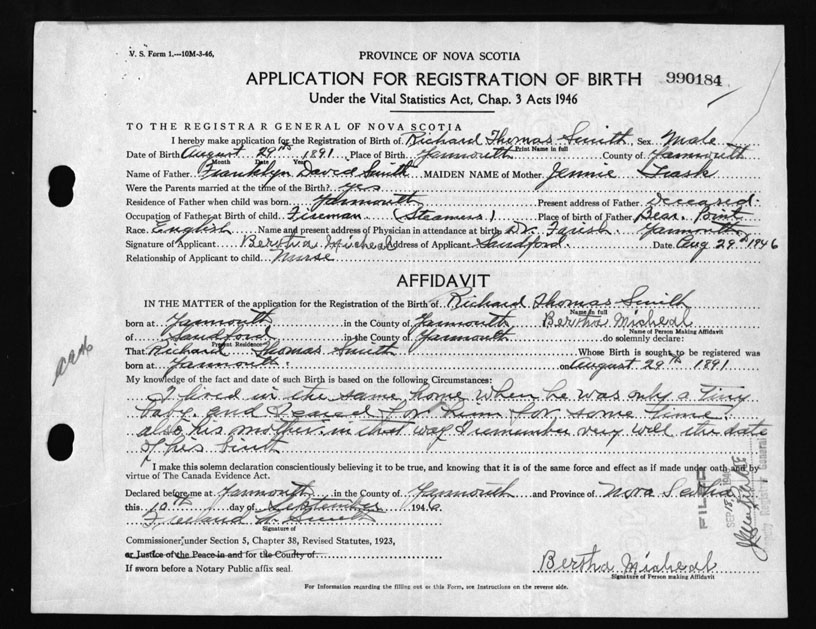 V. S. Form 1.---10M-3-46,
PROVINCE OF NOVA SCOTIA
APPLICATION FOR REGISTRATION OF BIRTH 990184
Under the Vital Statistics Act, Chap. 3 Acts 1946
TO THE REGISTRAR GENERAL OF NOVA SCOTIA
I hereby make application for the Registration of Birth of Richard Thomas Smith Sex Male
Print Name in full
Date of Birth August 29th 1891. Place of Birth Yarmouth County of Yarmouth
Month Date Year
Name of Father Franklyn David Smith MAIDEN NAME of Mother Jennie Trask
Were the Parents married at the time of the Birth? yes
Residence of Father when child was born Yarmouth Present address of Father deceased.
Occupation of Father at Birth of child Fireman (Steamers) Place of birth of Father Bear Point
Race English Name and present address of Physician in attendance at birth Dr. Farish Yarmouth
Signature of Applicant Bertha Micheal Address of Applicant Sandford Date Aug 29th 1946
Relationship of Applicant to child Nurse
AFFIDAVIT
IN THE MATTER of the application for the Registration of the Birth of Richard Thomas Smith
Name in full
born at Yarmouth in the County of Yarmouth Bertha Micheal
Name of Person Making Affidavit
of Sandford in the County of Yarmouth do solemnly declare:
Present Residence
That Richard Thomas Smith Whose Birth is sought to be registered was
born at Yarmouth. on August 29th 1891
My knowledge of the fact and date of such Birth is based on the following Circumstances:
I lived in the same home when he was only a tiny
baby and I cared for him for some time.
also his mother. in that way I remember very well the date
of his birth
I make this solemn declaration conscientiously believing it to be true, and knowing that it is of the same force and effect as if made under oath and by
virtue of The Canada Evidence Act.
Declared before me at Yarmouth in the County of Yarmouth and Province of Nova Scotia
this 10th day of September 1946
Smith
Signature of
Commissioner, under Section 5, Chapter 38, Revised Statutes, 1923,
or Justice of the Peace in and for the County of
If sworn before a Notary Public affix seal.
Bertha Micheal
Signature of Person making Affidavit
For Information regarding the filling out of this Form, see Instructions on the reverse side.
FILED
Deputy Registrar General